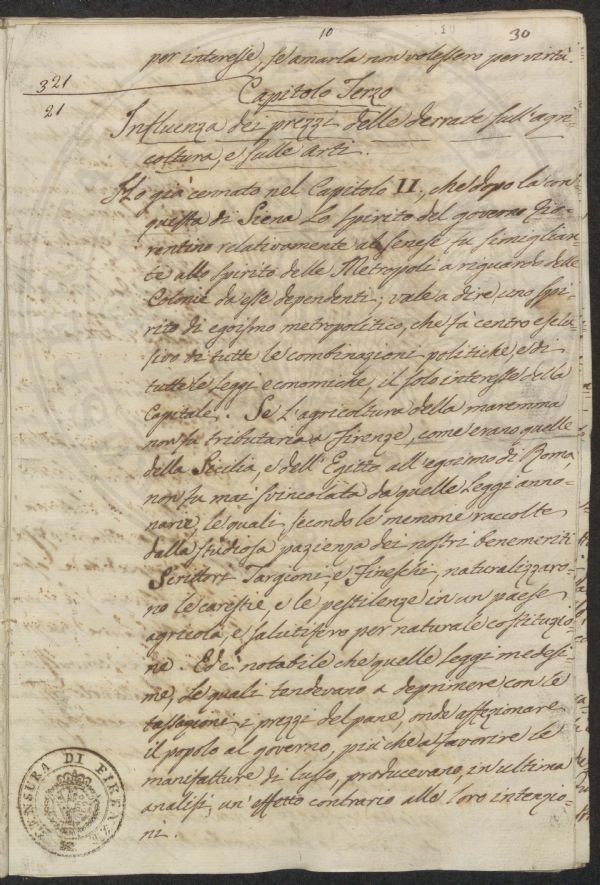 10
30
per interesse, se amarla non volessero per virtù.
321
21
Capitolo Terzo
Influenza dei prezzi delle derrate sull'agri
coltura, e sulle Arti.
Ho già cennato nel Capitolo II, che dopo la con
quista di Siena lo spirito del governo Fio-
rentino relativamente al senese fu simiglian-
te allo spirito delle Metropoli a riguardo delle
Colonie da esse dependenti; vale a dire uno spi-
rito di egoismo metropolitico, che fà centro esclu
sivo di tutte le combinazioni politiche, e di
tutte le leggi economiche, il solo interesse della
Capitale. Se l'agricoltura della maremma
non fu tributaria a Firenze, come erano quelle
della Sicilia, e dell'Egitto all'egoismo di Roma,
non fu mai svincolata da quelle leggi anno-
narie, le quali, secondo le memorie raccolte
dalla studiosa pazienza dei nostri benemeriti
Scrittori Targioni, e Fineschi, naturalizzaro-
no le carestie, e le pestilenze in un paese
agricola, e salutifero per naturale costituzio-
ne. Ed è notabile che quelle leggi medesi-
me, le quali tendevano a deprimere con le
tassazioni i prezzi del pane, onde affezionare
il popolo al governo, più che a favorire le
manifatture di lusso, producevano, in ultima
analisi, un'effetto contrario alle loro intenzio-
ni.
CENSURA DI FIRENZE